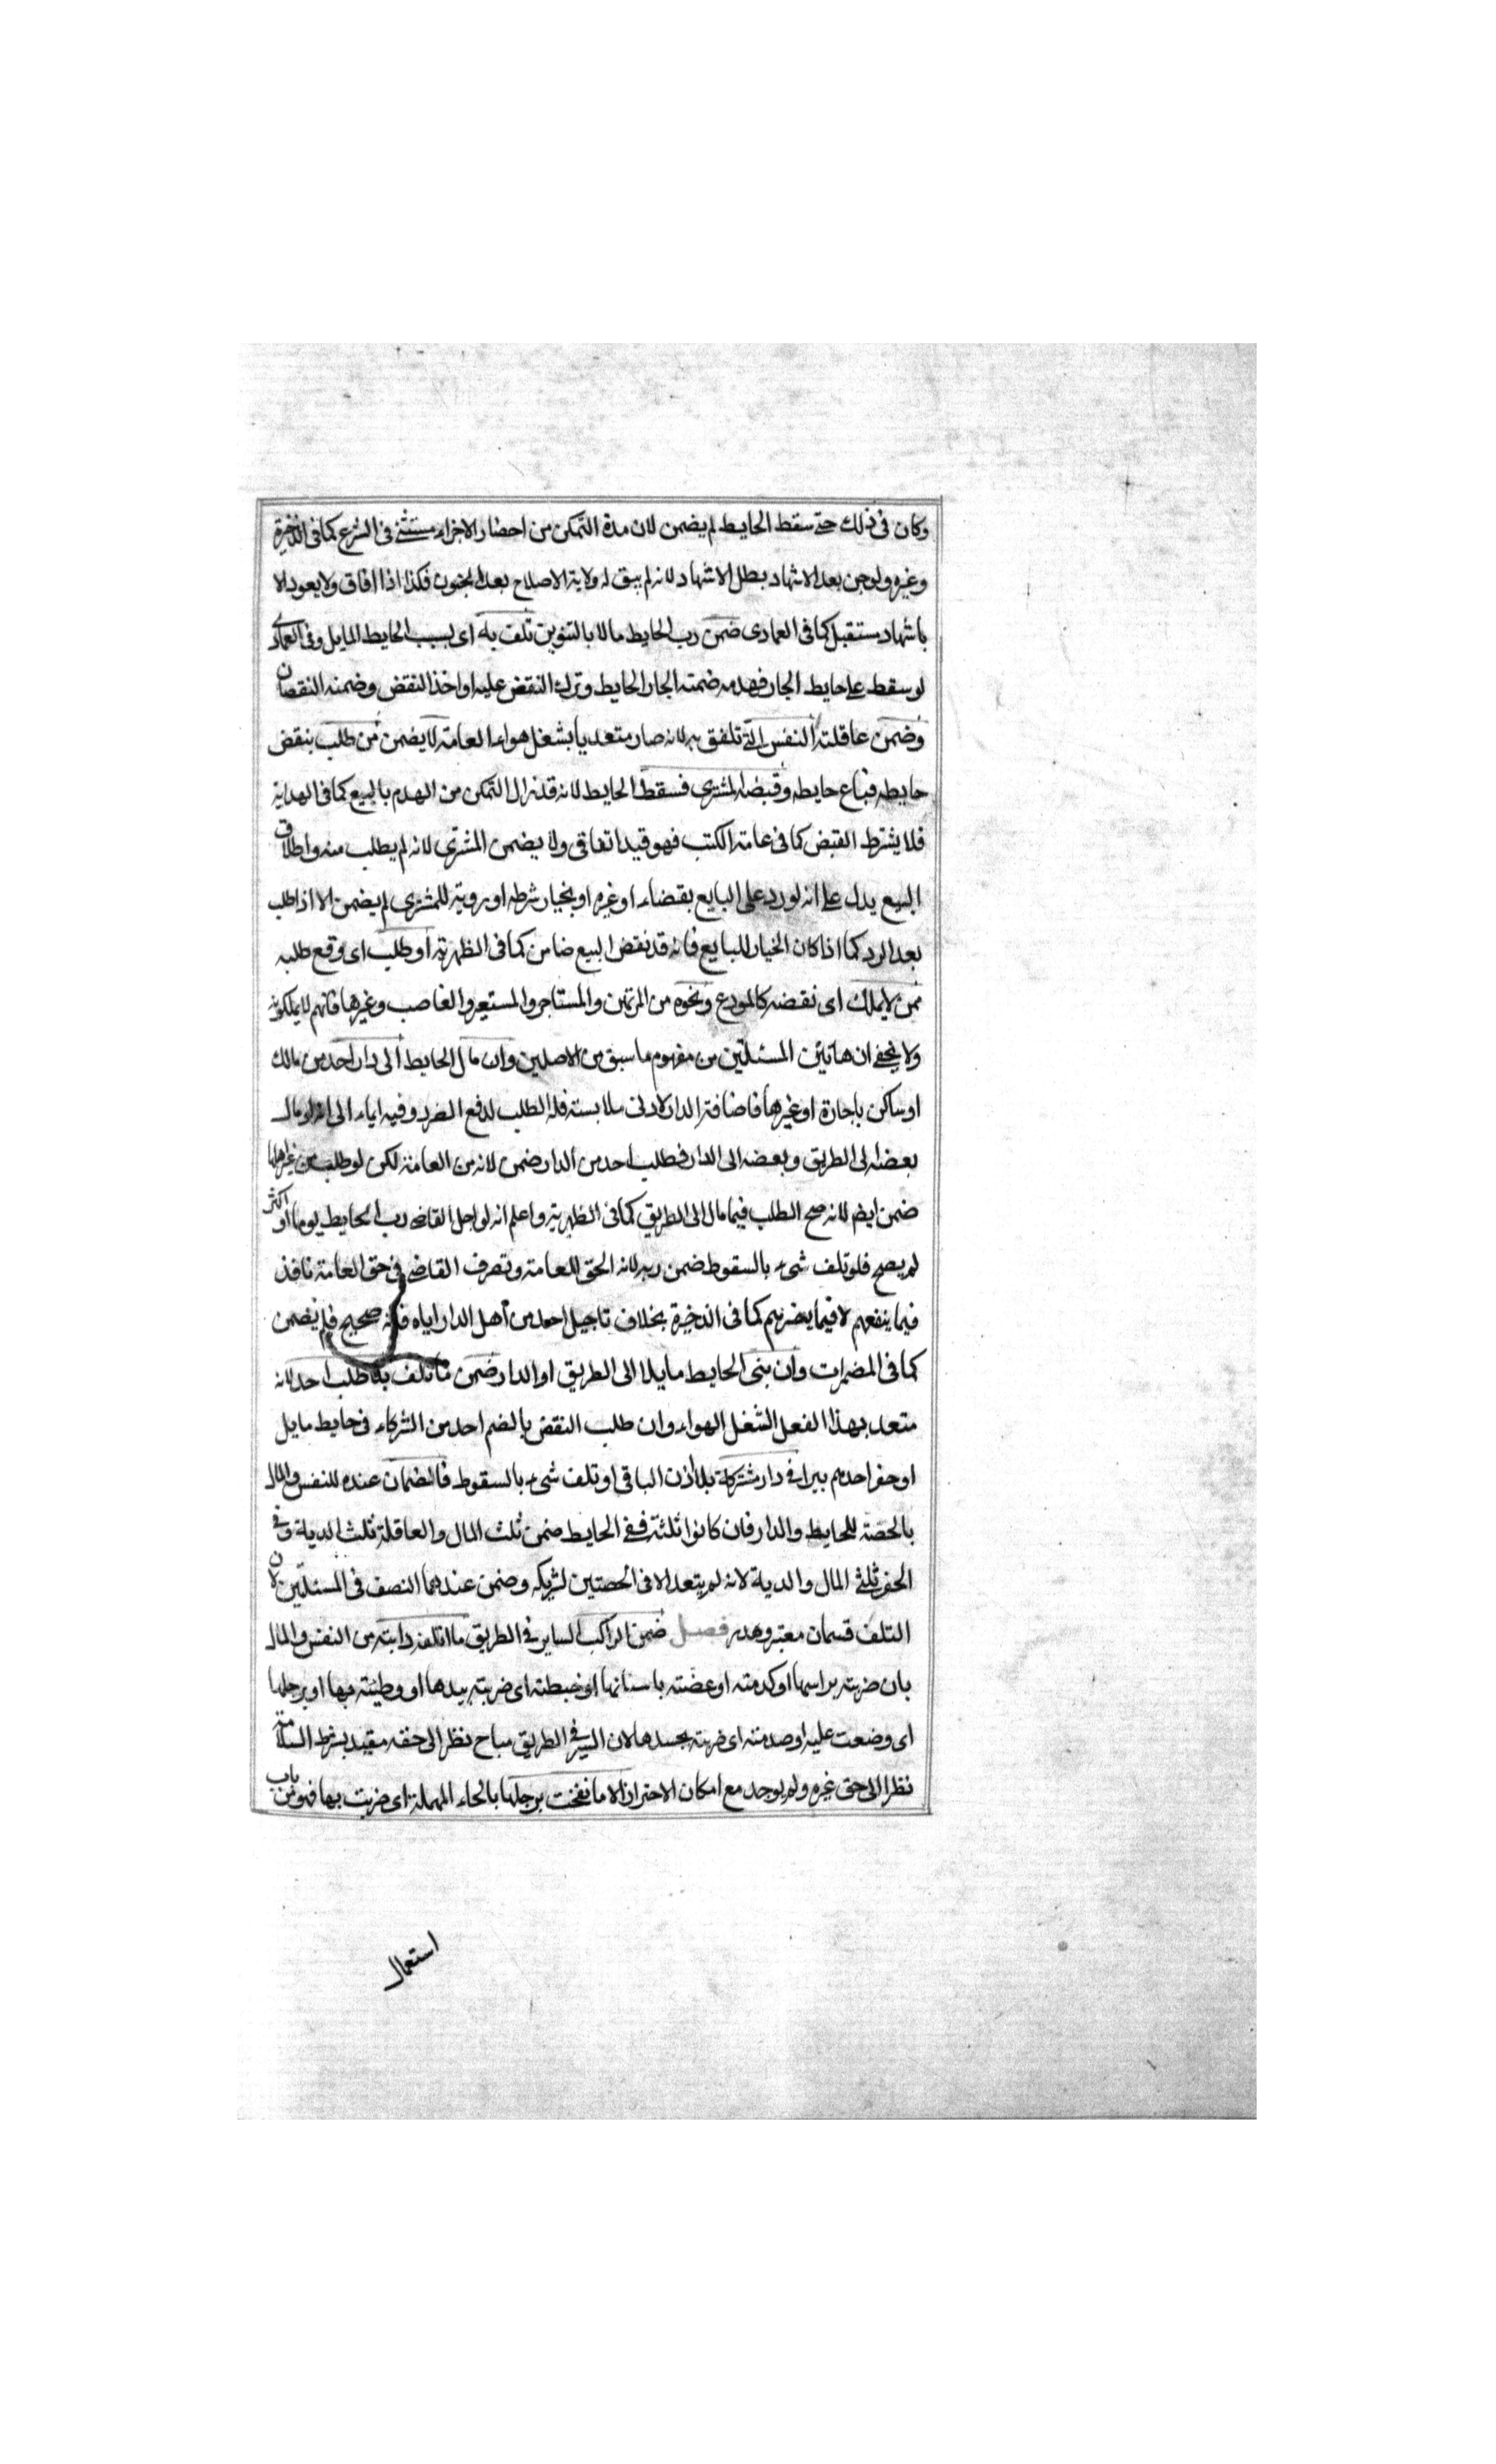 وكان فى ذلك حتى سقط الحايط لم يضمن لان مدة التمكن من احضار الاجراء مستثنى فى الشرع كما فى الذخيرة
وغيره ولو جن بعد الاشهاد بطل الاشهاد لانه لم يبق له ولاية الاصلاح بعد الجنون فكذا اذا افاق ولا يعود الا
باشهاد مستقبل كما فى العمادى ضمن رب الحايط مالا بالتنوين تلف به اى بسبب الحايط المايل وفى العمادى
لو سقط على حايط الجار فهدمه ضمنه الجار الحايط وترك النقض عليه او اخذ النقض وضمنه النقصان
وضمن عاقلته النفس التى تلفت به لانه صار متعديا بشغل هواء العامة لا يضمن من طلب بنقض
حايطه فباع حايطه وقبضه المشترى فسقط الحايط لانه قد زال التمكن من الهدم بالبيع كما فى الهداية
فلا يشترط القبض كما فى عامة الكتب فهو قيد اتفاقى ولا يضمن المشترى لانه لم يطلب منه واطلاق
البيع يدل على انه لو رد على البايع بقضاء او غيره او بخيار شرط او روية للمشترى لم يضمن الا اذا طلب
بعد الرد كما اذا كان الخيار للبايع فانه قد نقض البيع ضامن كما فى الظهرية او طلب اى وقع طلبه
ممن لا يملك اى نقضه كالمودع ونحوه من المرتهن والمستاجر والمستعير والغاصب وغيرها فانهم لا يملكونه
ولا يخفى ان هاتين المسئلتين من مفهوم ما سبق من الاصلين وان مال الحايط الى دار احد من مالك
او ساكن باجارة او غيرها فاضافة الدار لادنى ملابسته فله الطلب لدفع الضرر وفيه ايماء الى انه لو مال
بعضه الى الطريق وبعضه الى الدار فطلب احد من الدار ضمن لانه من العامة لكن لو طلب من غير اهلها
ضمن ايضم لانه صح الطلب فيما مال الى الطريق كما فى الظهرية واعلم انه لو اجل القاضى رب الحايط يوما او اكثر
لم يصح فلو تلف شىء بالسقوط ضمن ربه لانه الحق للعامة وتصرف القاضى فى حق العامة نافذ
فيما ينفعهم لا فيما يضرهم كما فى الذخيرة بخلاف تاجيل احد من اهل الدار اياه فانه صحيح فلم يضمن
كما فى المضمرات وان بنى الحايط مايلا الى الطريق او الدار ضمن ما تلف بلا طلب احد لانه
متعد بهذا الفعل الشغل الهواء وان طلب النقض بالضم احد من الشركاء فى حايط مايل
او حفر احدهم بيرا فى دار مشتركة بلا اذن الباقى او تلف شىء بالسقوط فالضمان عنده للنفس والمال
بالحصة للحايط والدار فان كانوا ثلثة ففى الحايط ضمن ثلث المال والعاقلة ثلث الدية وفى
الحفر ثلثى المال والدية لانه لم يتعد الا فى الحصتين لشريكه وضمن عندهما النصف فى المسئلتين لان
التلف قسمان معتبر وهدر فصل ضمن الراكب الساير فى الطريق ما اتلفه دابته من النفس والمال
بان ضربته براسها او كدمته او عضته باسنانها او خبطته اى ضربته بيدها او وطئته بها او برجلها
اى وضعت عليه او صدمته اى ضربته بجسدها لان السير فى الطريق مباح نظرا الى حقه مقيد بشرط السلامة
نظرا الى حق غيره ولم يوجد مع امكان الاحتراز الا ما نفخت برجلها بالحاء المهملة اى ضربت بها فهو من باب
استعمال